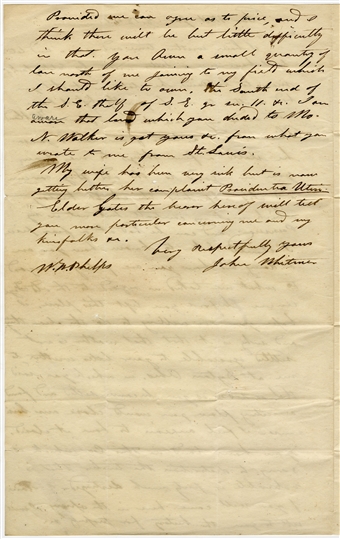 Provided we can agree as to price, and I
think there will be but little difficulty
in that. You own a small quantity of
land north of me joining to my field which
I should like to own. the South end of
the S.E. the ½ of S.E. qr sec. 11. &c. I am
aware that land which you deeded to Mrs.
N. Walker is yet yours &c. from what you
wrote to me from St. Louis.
My wife has been very sick but is now
getting better, her complaint
Elder Gates the bearer hereof will tell
you more particular concerning me and my
kinsfolks &c.
Very Respectfully yours
W. W. Phelps John Whitmer